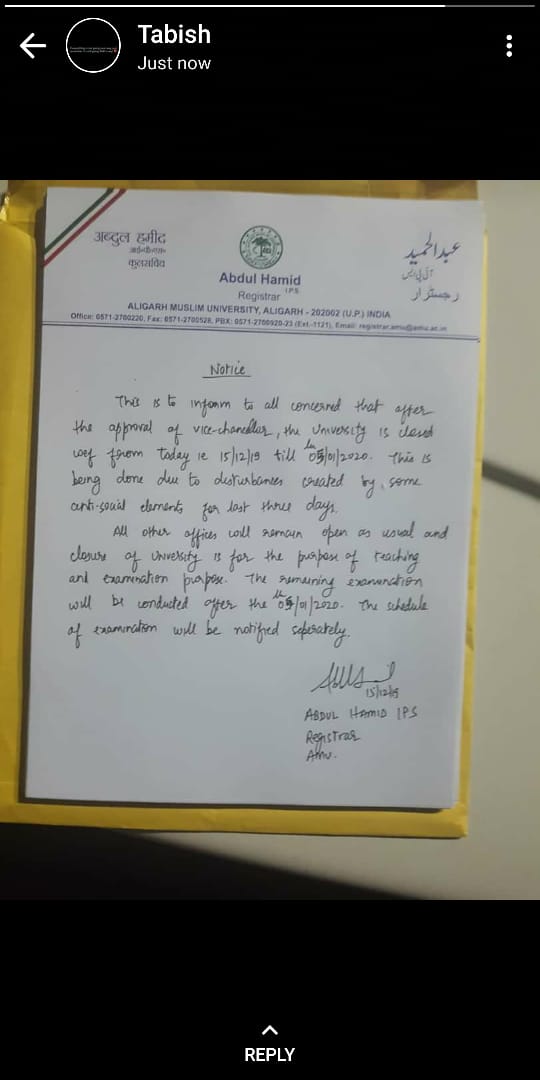 Tabish
Just now
अब्दुल हमीद
आई०पी०एस०
कुलसचिव
Abdul Hamid
I.P.S.
Registrar
عبدالحمید
آئی پی ایس
رجسٹرار
ALIGARH MUSLIM UNIVERSITY, ALIGARH - 202002 (U.P.) INDIA
Office: 0571-2700220, Fax: 0571-2700528, PBX: 0571-2700920-23 (Ext.-1121), Email: registrar.amu@amu.ac.in
Notice
This is to inform to all concerned that after
the approval of vice-chancellor, the University is closed
wef from today ie 15/12/19 till 05/01/2020. This is
being done due to disturbances created by some
anti-social elements for last three days.
All other offices will remain open as usual and
closure of University is for the purpose of teaching
and examination purpose. The remaining examination
will be conducted after the 05/01/2020. The schedule
of examination will be notified seperately.
15/12/19
ABDUL HAMID IPS
Registrar
Amu.
REPLY